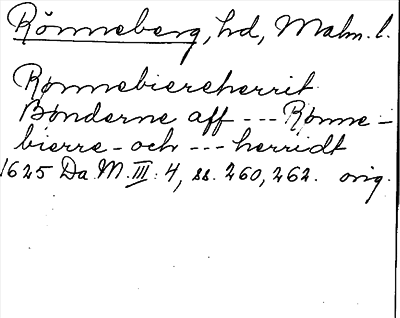 Rönneberg, hd, Malm. l.
Rønnebiereherrit
Bønderne aff --- Rønne-
bierre- och --- herridt
1625 Da. M. III: 4, ss. 260, 262. orig.